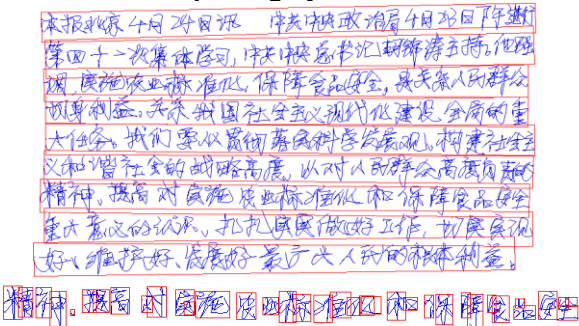 本报北京4月24日讯 中共中央政治局4月23日下午进行
第四十一次集体学习,中共中央总书记胡锦涛主持。他强
调,实施农业标准化,保障食品安全,是关系人民群众
切身利益、关系我国社会主义现代化建设全局的重
大任务。我们要从贯彻落实科学发展观、构建社会主
义和谐社会的战略高度,以对人民群众高度负责的
精神,提高对实施农业标准化和保障食品安全
重大意义的认识,扎扎实实做好工作,切实实现
好、维护好、发展好最广大人民的根本利益。
精神,提高对实施农业标准化和保障食品安全